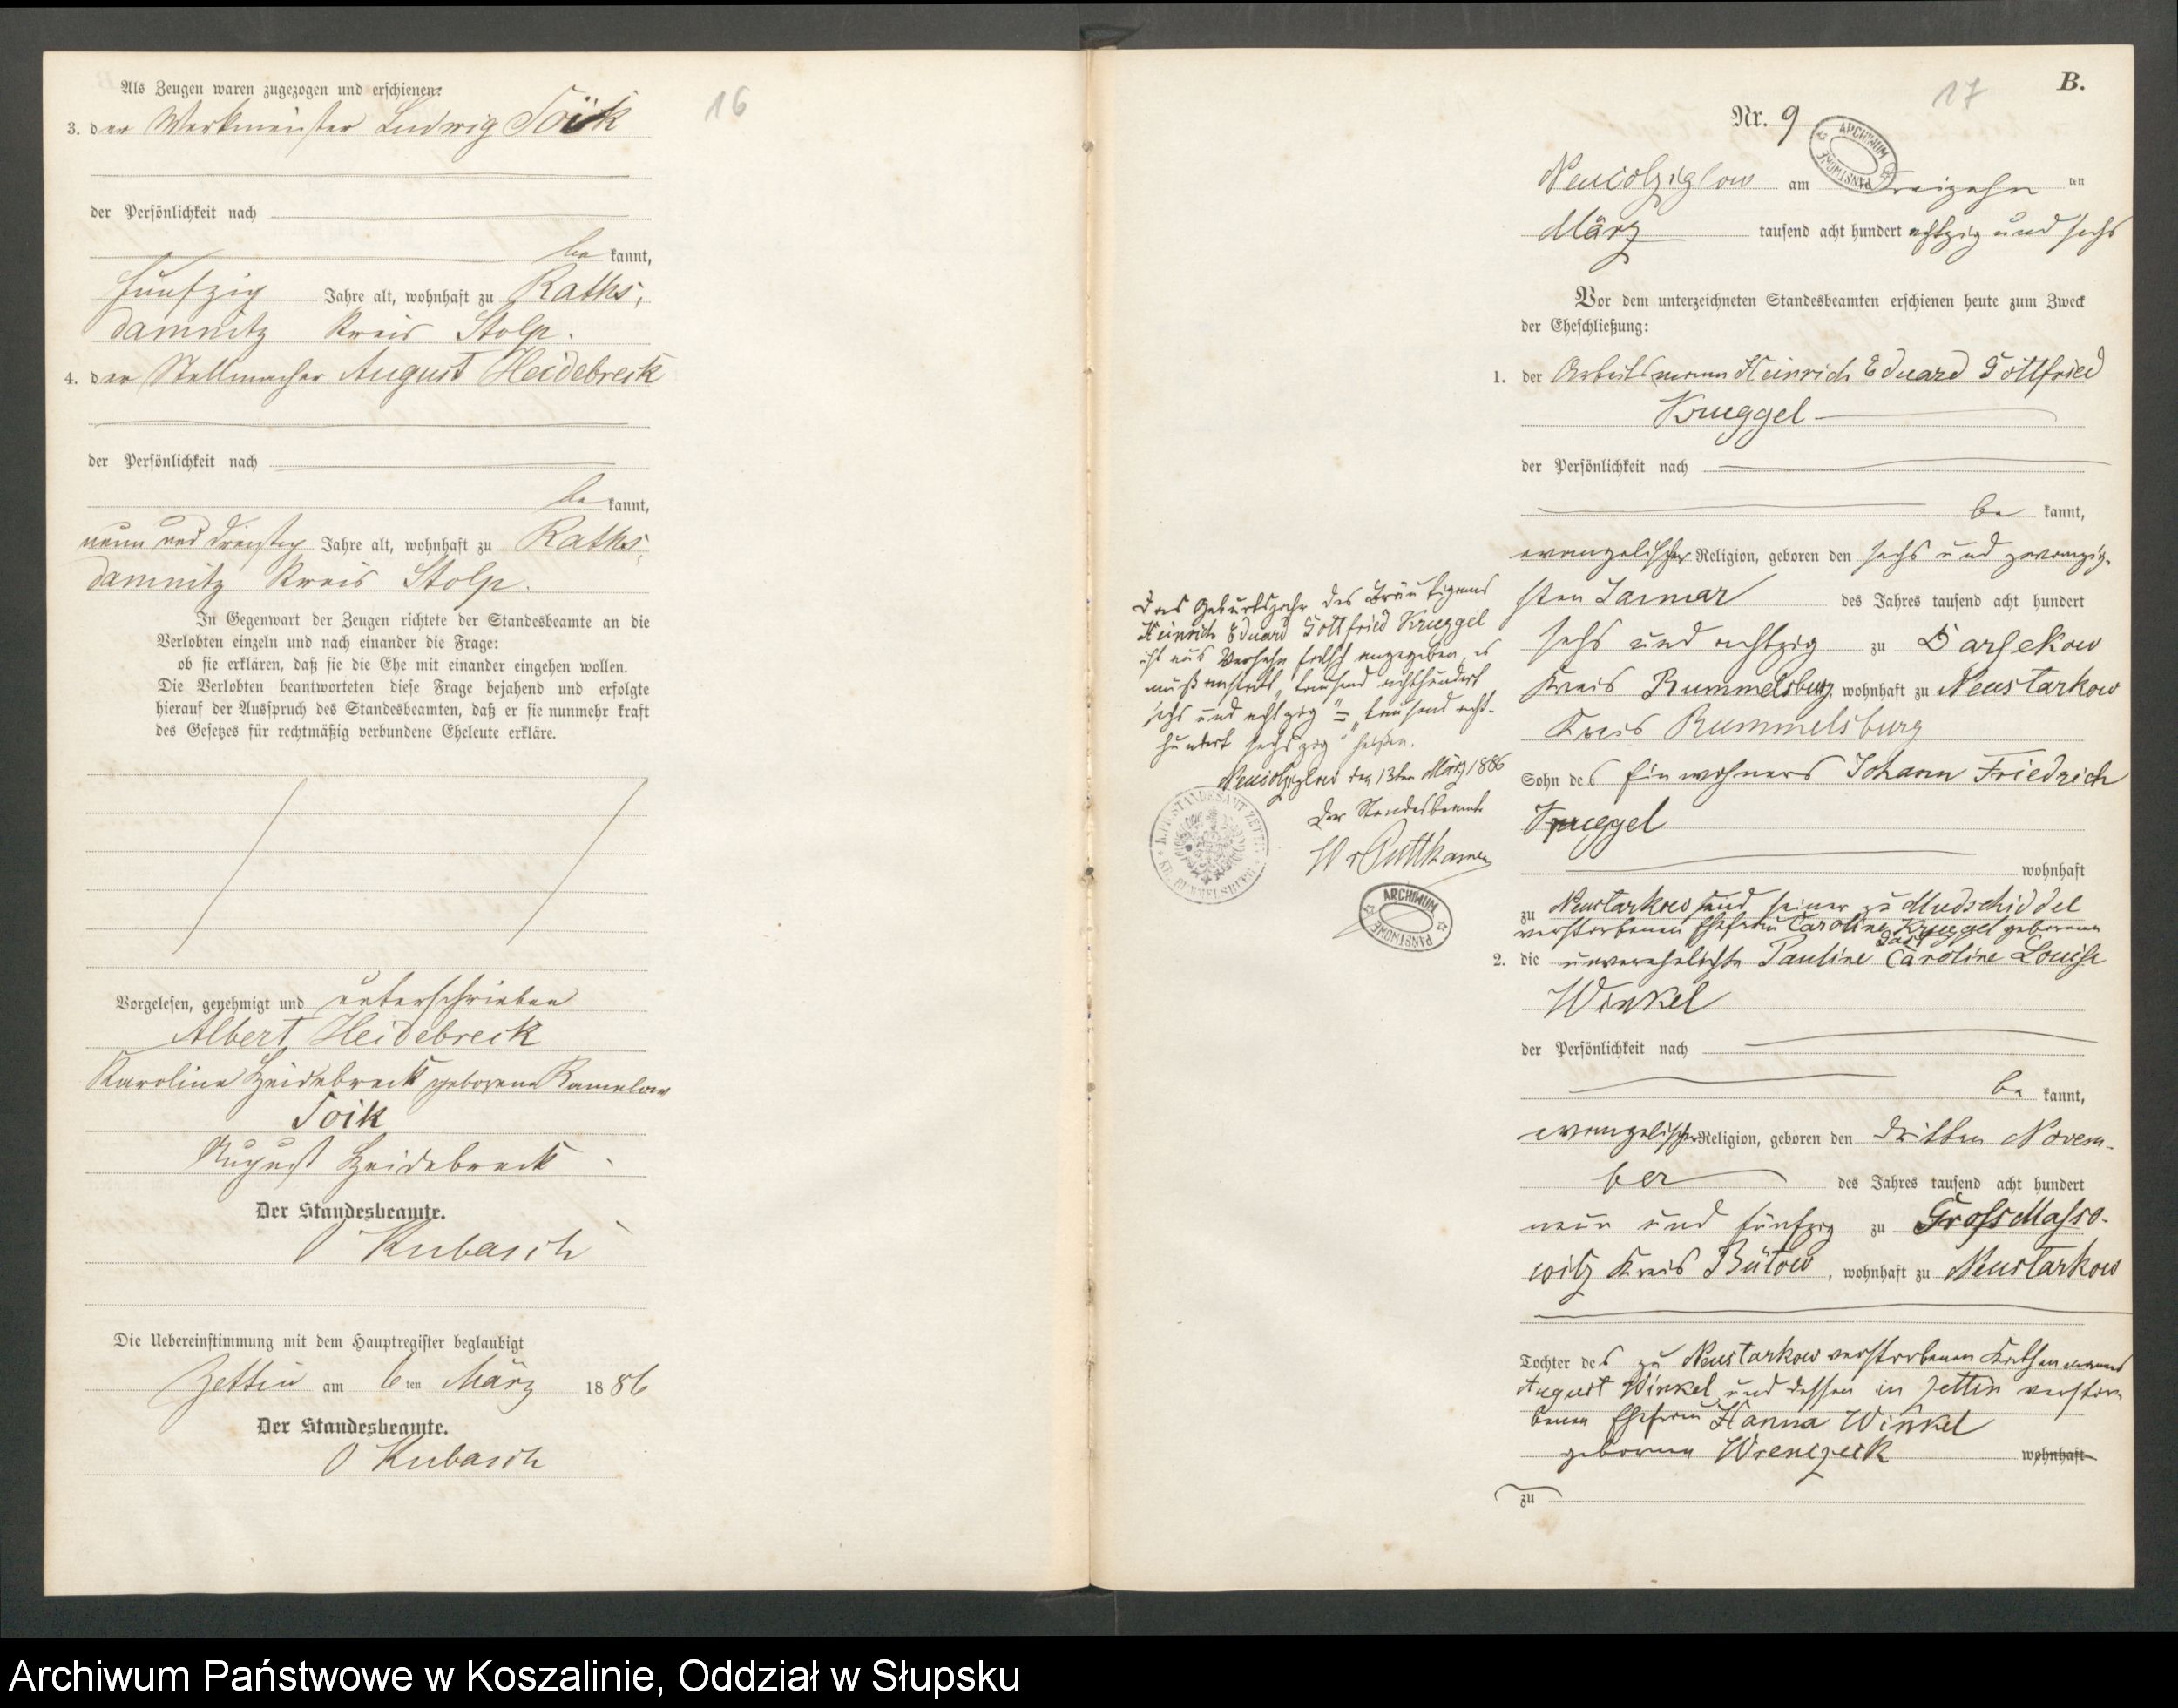 Als Zeugen waren zugezogen und erschienen:
3. der Werkmeister Ludwig Toik
der Persönlichkeit nach
be kannt,
fünfzig Jahre alt, wohnhaft zu Raths,
damnitz Kreis Stolp.
4. der Stellmacher August Heidebreck
der Persönlichkeit nach
be kannt,
neun und dreißig Jahre alt, wohnhaft zu Raths,
damnitz Kreis Stolp.
In Gegenwart der Zeugen richtete der Standesbeamte an die
Verlobten einzeln und nach einander die Frage:
ob sie erklären, daß sie die Ehe mit einander eingehen wollen.
Die Verlobten beantworteten diese Frage bejahend und erfolgte
hierauf der Ausspruch des Standesbeamten, daß er sie nunmehr kraft
des Gesetzes für rechtmäßig verbundene Eheleute erkläre.
Vorgelesen, genehmigt und unterschrieben
Albert Heidebreck
Karoline Heidebreck geborene Kamelow
Toik
August Heidebreck
Der Standesbeamte.
Kubasch
Die Uebereinstimmung mit dem Hauptregister beglaubigt
Zettin am 6 ten März 18 86
Der Standesbeamte.
Kubasch
16
17
B.
Nr. 9
ARCHIWUM PAŃSTWOWE
Neucolziglow am Dreizehn ten
März tausend acht hundert achtzig und sechs
Vor dem unterzeichneten Standesbeamten erschienen heute zum Zweck
der Eheschließung:
1. der Arbeitsmann Heinrich Eduard Gottfried
Krueggel
der Persönlichkeit nach
be kannt,
evangelischer Religion, geboren den sechs und zwanzig-
sten Januar des Jahres tausend acht hundert
sechs und achtzig zu Darsekow
Kreis Rummelsburg, wohnhaft zu Neustarkow
Kreis Rummelsburg
Sohn des Einwohners Johann Friedrich
Krueggel
wohnhaft
zu Neustarkow und seiner zu Mudschiddel
verstorbenen Ehefrau Caroline Krueggel geborenen
2. die unverehelichte Pauline Caroline Louise
Winkel
der Persönlichkeit nach
be kannt,
evangelischer Religion, geboren den dritten Novem-
ber des Jahres tausend acht hundert
neun und fünfzig zu Gross Masso-
witz Kreis Bütow, wohnhaft zu Neustarkow
Tochter des zu Neustarkow verstorbenen Kathenmanns
August Winkel und dessen in Zettin verstor-
benen Ehefrau Hanna Winkel
geborenen Wrenczeck wohnhaft
zu
Das Geburtsjahr des Bräutigams
Heinrich Eduard Gottfried Krueggel
ist aus Versehen falsch angegeben, es
muß anstatt „tausend achthundert
sechs und achtzig" = „tausend acht-
hundert sechszig" heißen.
Neucolziglow den 13ten März 1886
Der Standesbeamte
W v Puttkamer
K. PR. STANDESAMT ZETTIN KR. RUMMELSBURG
ARCHIWUM PAŃSTWOWE
Archiwum Państwowe w Koszalinie, Oddział w Słupsku